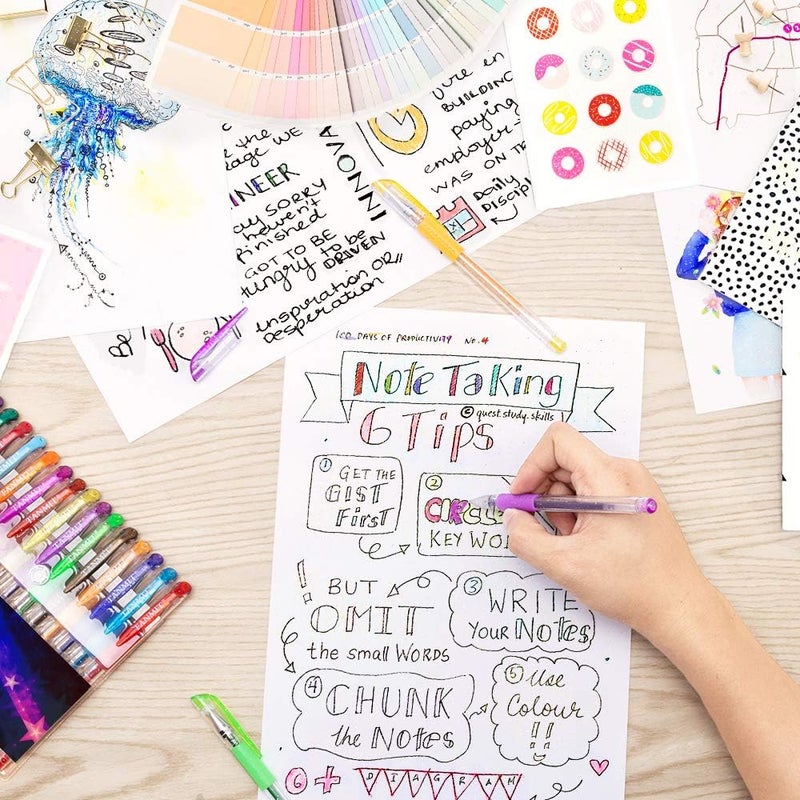 100 DAYS OF PRODUCTIVITY NO. 4
Note Taking
© quest.study.skills
6 Tips
1 GET THE
GIST
First
2
CIRCLE
KEY
BUT
OMIT
the small WORDS
3 WRITE
Your Notes
4 CHUNK
the Notes
5 Use
Colour
!!
6 + DIAGRAM
the
WE
NEER
SORRY
haven't
finished
GOT TO BE
hungry to be
DRIVEN
inspiration OR
Desperation
INNOVA
en
BUILDING
paying
employer
WAS ON
Daily
TANMIT
TANMIT
TANMIT
TANMIT